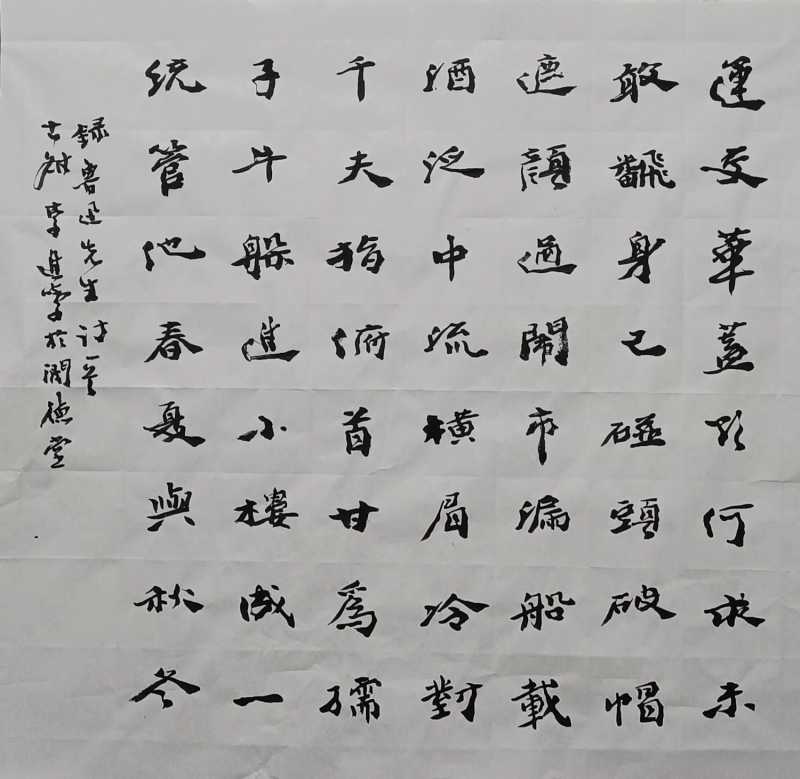 運交華蓋欲何求未
敢飜身已碰頭破帽
遮顏過鬧市漏船載
酒泛中流橫眉冷對
千夫指俯首甘爲孺
子牛躲進小樓成一
统管他春夏與秋冬
録魯迅先生诗一首
古李進學於潤德堂